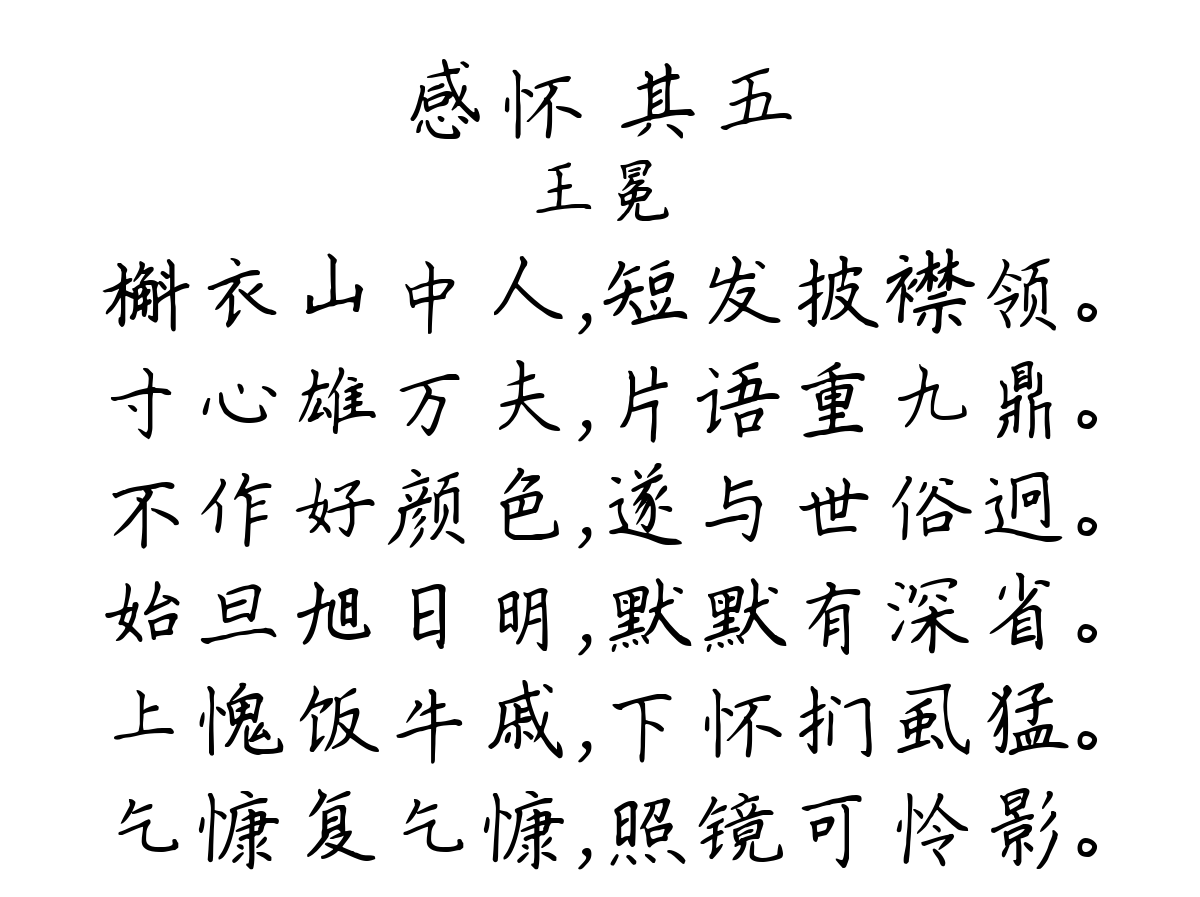 感怀 其五
王冕
槲衣山中人,短发披襟领。
寸心雄万夫,片语重九鼎。
不作好颜色,遂与世俗迥。
始旦旭日明,默默有深省。
上愧饭牛戚,下怀扪虱猛。
乞慷复乞慷,照镜可怜影。